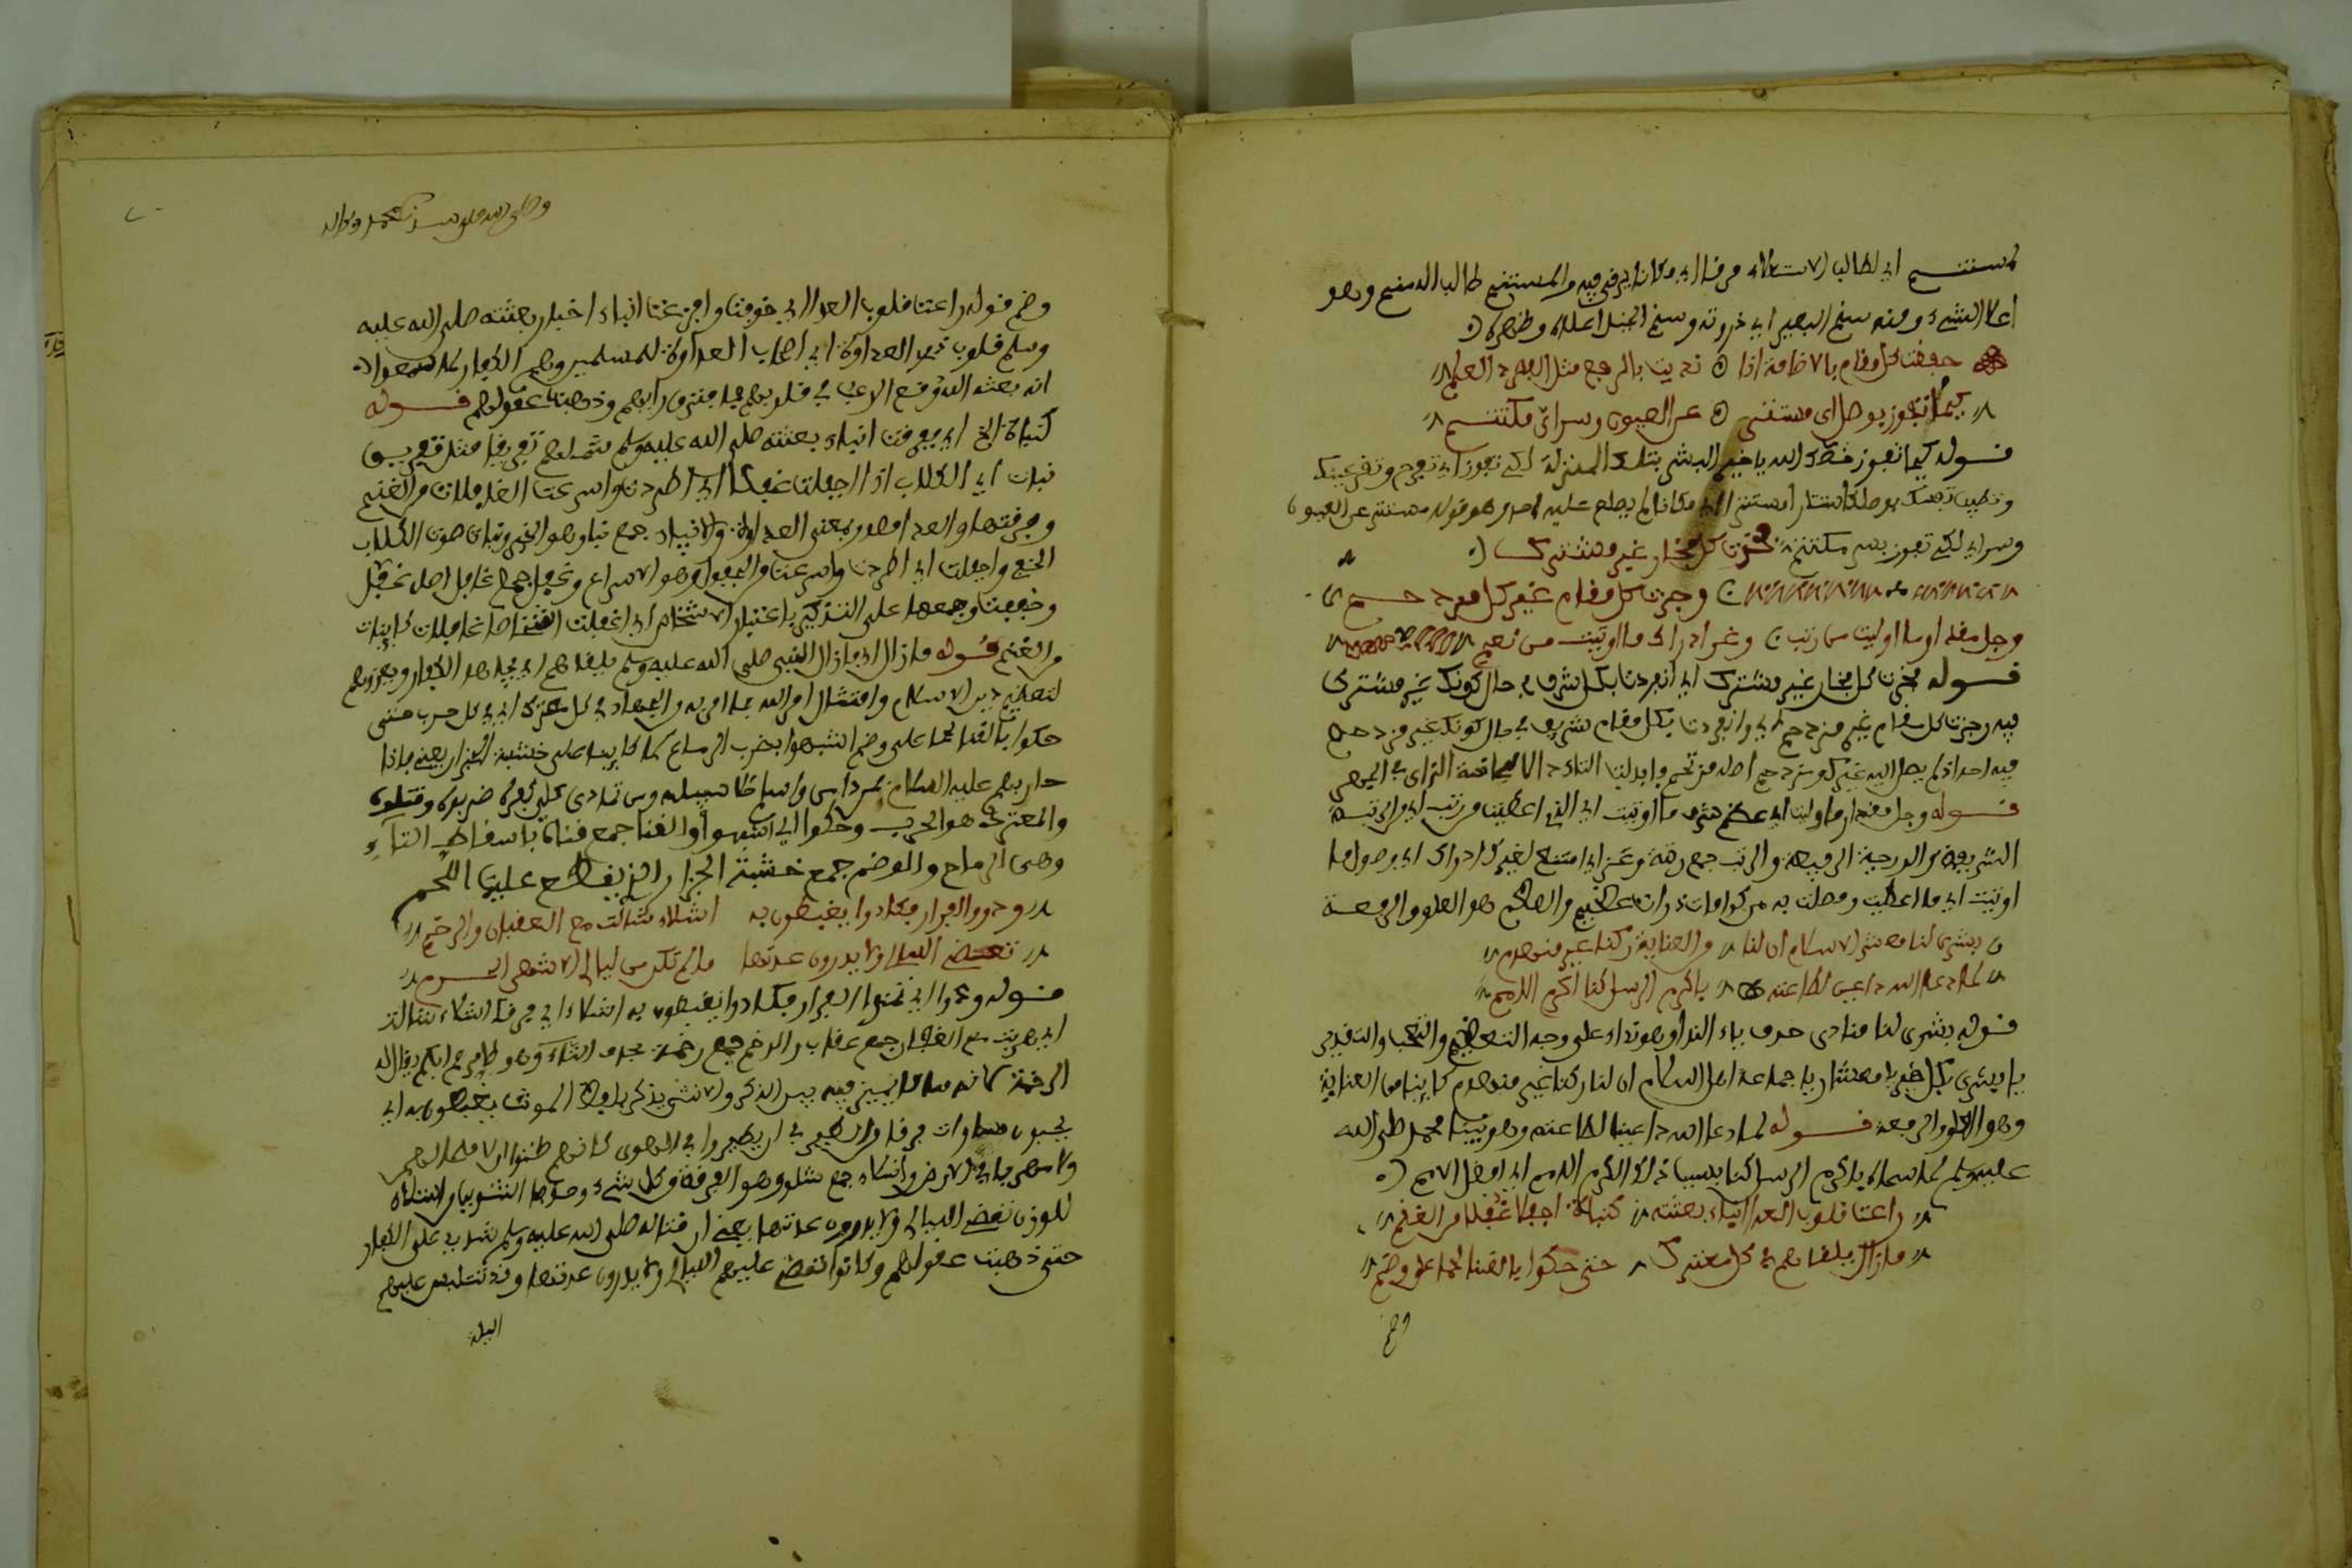 لمستنم اي لطالب الاستعلاء مرقا اي مكانا يرقى فيه والمستنم طالب السنم وهو
اعلا الشيء ومنه سنم البعير اي ذروته وسنم الجبل اعلاه وظهره
خفضت كل مقام بالاضافة اذا نديت بالرفع مثل المفرد العلم
كيما تفوز بوصل اي مستتر عن العيون وسر اي مكتتم
قوله كيما تفوز خصك الله يا خير البشر بتلك المنزلة لكي تفوز اي تفرح وتقر عينك
وتطيب نفسك بوصل اي مستتر اي مكانا لم يطلع عليه احد وهو قوله مستتر عن العيون
وسر اي لكي تفوز بسر مكتتم فحزت كل فخار غير مشترك
وجزت كل مقام غير مزدحم
وجل مقدار ما اوليت من رتب وعز ادراك ما اوتيت من نعم
قوله فحزت كل فخار غير مشترك اي انفردت بكل شرف في حال كونك غير مشترك
فيه وجزت كل مقام غير مزدحم اي وانفردت بكل مقام شريف في حال كونك غير مزدحم
فيه احد اذ لم يصل اليه غيرك ومزدحم اصله مزتحم وابدلت التاء دالا لمجانسة الزاي في الجهر
قوله وجل مقدار ما اوليت اي عظم شرف ما اوتيت اي الذي اعطيت من رتب اي من الرتبة
الشريفة والدرجة الرفيعة والرتب جمع رتبة وعز اي امتنع لغيرك ادراك اي وصول ما
اوتيت اي ما اعطيت وفضلت به من كرامات
بشرى لنا معشر الاسلام ان لنا من العناية ركنا غير منهدم
لما دعا الله داعينا لطاعته باكرم الرسل كنا اكرم الامم
قوله بشرى لنا منادى حرف ياء النداء وهو نداء على وجه التعظيم والتعجب والتقدير
يا بشرى بكل خير يا معشر اي يا جماعة اهل الاسلام ان لنا ركنا غير منهدم كاينا من العناية
وهو العلو والرفعة قوله لما دعا الله داعينا لطاعته وهو نبينا محمد صلى الله
عليه وسلم لما سماه باكرم الرسل كنا بسبب ذلك اكرم الامم اي افضل الامم
راعت قلوب العدا انباء بعثته كنباة اجفلت غفلا من الغنم
ما زال يلقاهم في كل معترك حتى حكوا بالقنا لحما على وضم
وضم

وصلى الله على سيدنا محمد وءاله
وضم قوله راعت قلوب العدا اي خوفت وافزعت انباء اخبار بعثته صلى الله عليه
وسلم قلوب ذوي العداوة اي اصحاب العداوة للمسلمين وهم الكفار لما سمعوا
انه بعثه الله وقع الرعب في قلوبهم فافترق رايهم وذهبت عقولهم قوله
كنباة الخ اي فعرفت انباء بعثته صلى الله عليه وسلم شملهم تفريقا مثل تفريق
نبات اي الكلاب اذا اجفلت غفلا اي اطردت واسرعت الغافلات من الغنم
وفرقتها والعدا مصدر بمعنى العداوة والانباء جمع نبا وهو الخبر ونباة صوت الكلاب
الخفي واجفلت اي اطردت واسرعت والجفول وهو الاسراع وغفل جمع غافل اصله غفل
وخففت وجمعها على التذكير باعتبار الاشخاص اي اغفلت اشخاصا غافلات كاينات
من الغنم قوله ما زال اي ما زال النبي صلى الله عليه وسلم يلقاهم اي يجاهد الكفار ويغزوهم
لتعظيم دين الاسلام وامتثال امر الله بما امر به والجهاد في كل معترك اي في كل حرب حتى
حكوا بالقنا لحما على وضم اشبهوا بضرب الرماح لحما كاينا على خشبة الجزار يعني ما اذا
حاربهم عليه السلام فمن داس واسلم خلا سبيله ومن تمادى على كفره ضربوه وقتلوه
والمعترك هو الحرب وحكوا اي اشبهوا والقنا جمع قناة باسقاط التاء
وهي الرماح والوضم جمع خشبة الجزار الذي يقطع عليها اللحم
ودوا الفرار فكادوا يغبطون به اشلاء شالت مع العقبان والرخم
تمضي الليالي ولا يدرون عدتها ما لم تكن من ليالي الاشهر الحرم
قوله ودوا اي تمنوا الفرار فكادوا يغبطون به اشلاء اي مرقا اشلاء شالت
اي هربت مع العقبان جمع عقاب والرخم جمع رخمة بحذف التاء وهو طاير يقال له
الرخمة كانه مما لا يميز فيه بين الذكر والانثى يذكر بلفظ المونث يغبطون به اي
يحبون مساوات مرقا والطير في ان يطيروا في الهوى كانهم ظنوا ان لا ملجا لهم
ولا مهرب لهم في الارض واشلاء جمع شلو وهو الفرقة من كل شيء
تمضي الليالي ولا يدرون عدتها يعني ان قتاله صلى الله عليه وسلم شديد على الكفار
حتى ذهبت عقولهم وكانوا تمضي عليهم الليالي ولا يدرون عدتها وقد تلتبس عليهم
الليلة